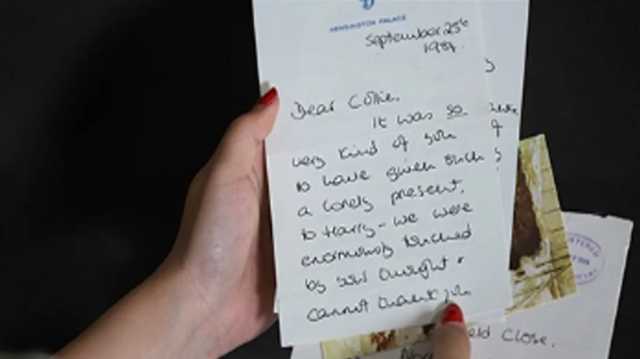 KENSINGTON PALACE
September 25th
1984.
Dear Collie,
It was so
very kind of you
to have given such
a lovely present,
to Harry - we were
enormously touched
by your thought &
cannot thank you
eld Close.